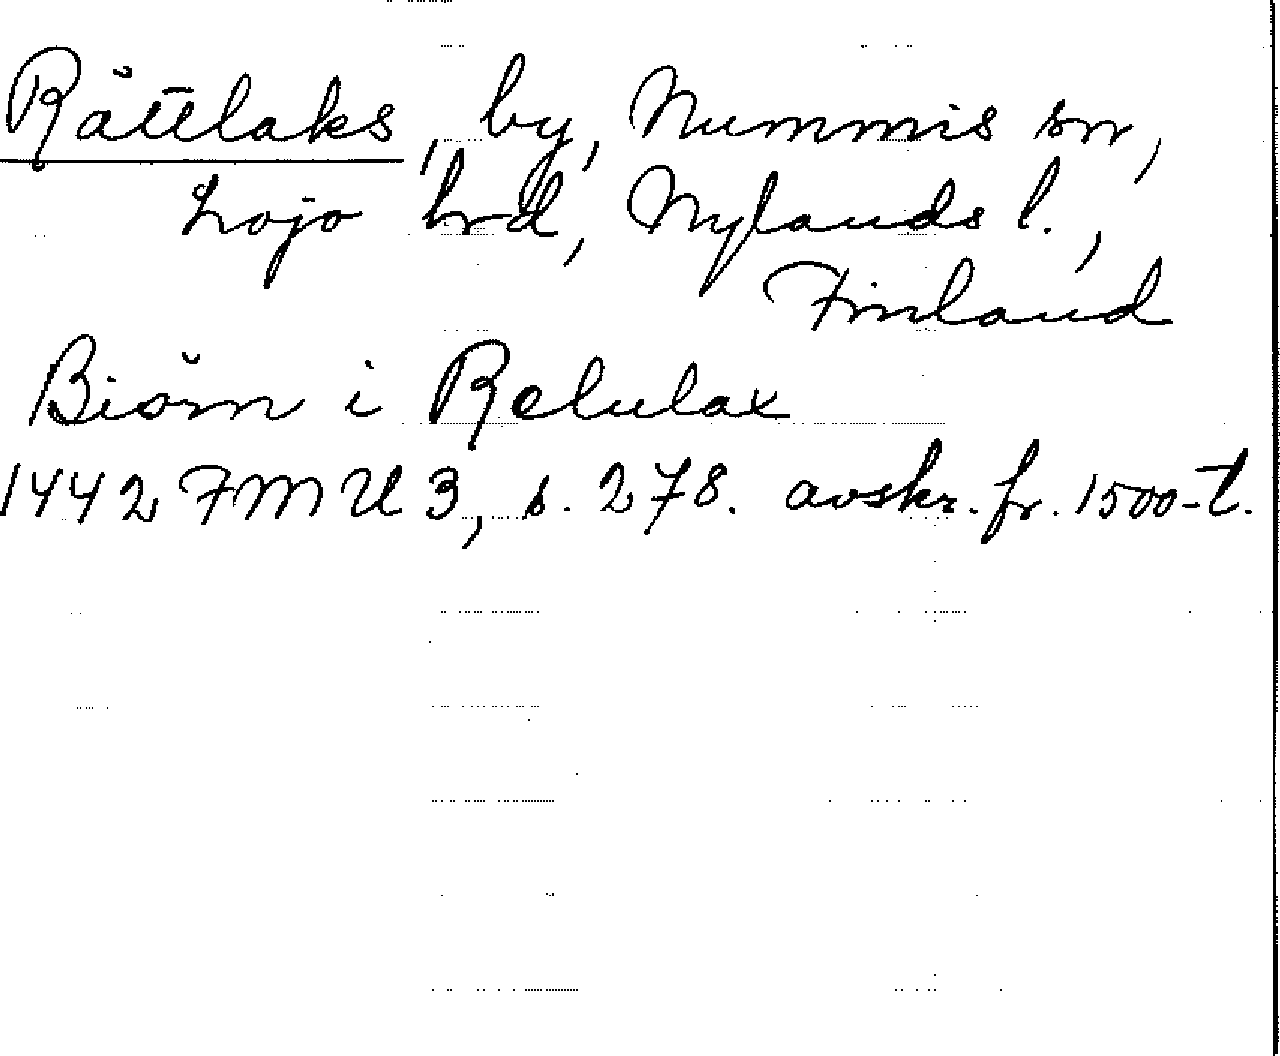 Rättlaks, by, Nummis sn,
Lojo hrd, Nylands l.,
Finland
Biörn i Relulax
1442 FMU 3, s. 278. avskr. fr. 1500-t.